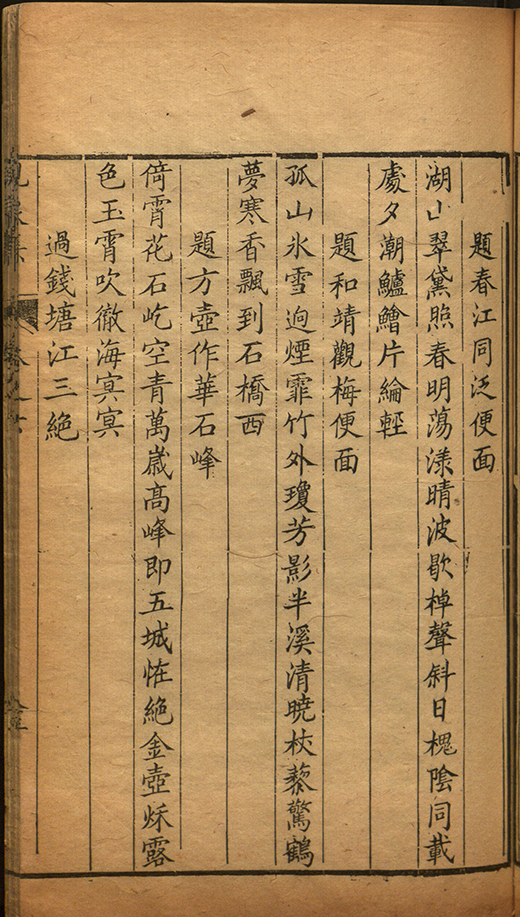 題春江同泛便面
湖山翠黛照春明蕩漾晴波歇棹聲斜日槐陰同載
處夕潮鱸鱠片綸輕
題和靖觀梅便面
孤山氷雪逈煙霏竹外瓊芳影半溪清曉杖藜驚鶴
夢寒香飄到石橋西
題方壺作華石峰
倚霄花石屹空青萬嵗髙峰即五城怪絶金壺烁露
色玉霄吹徹海㝠㝠
過錢塘江三絶